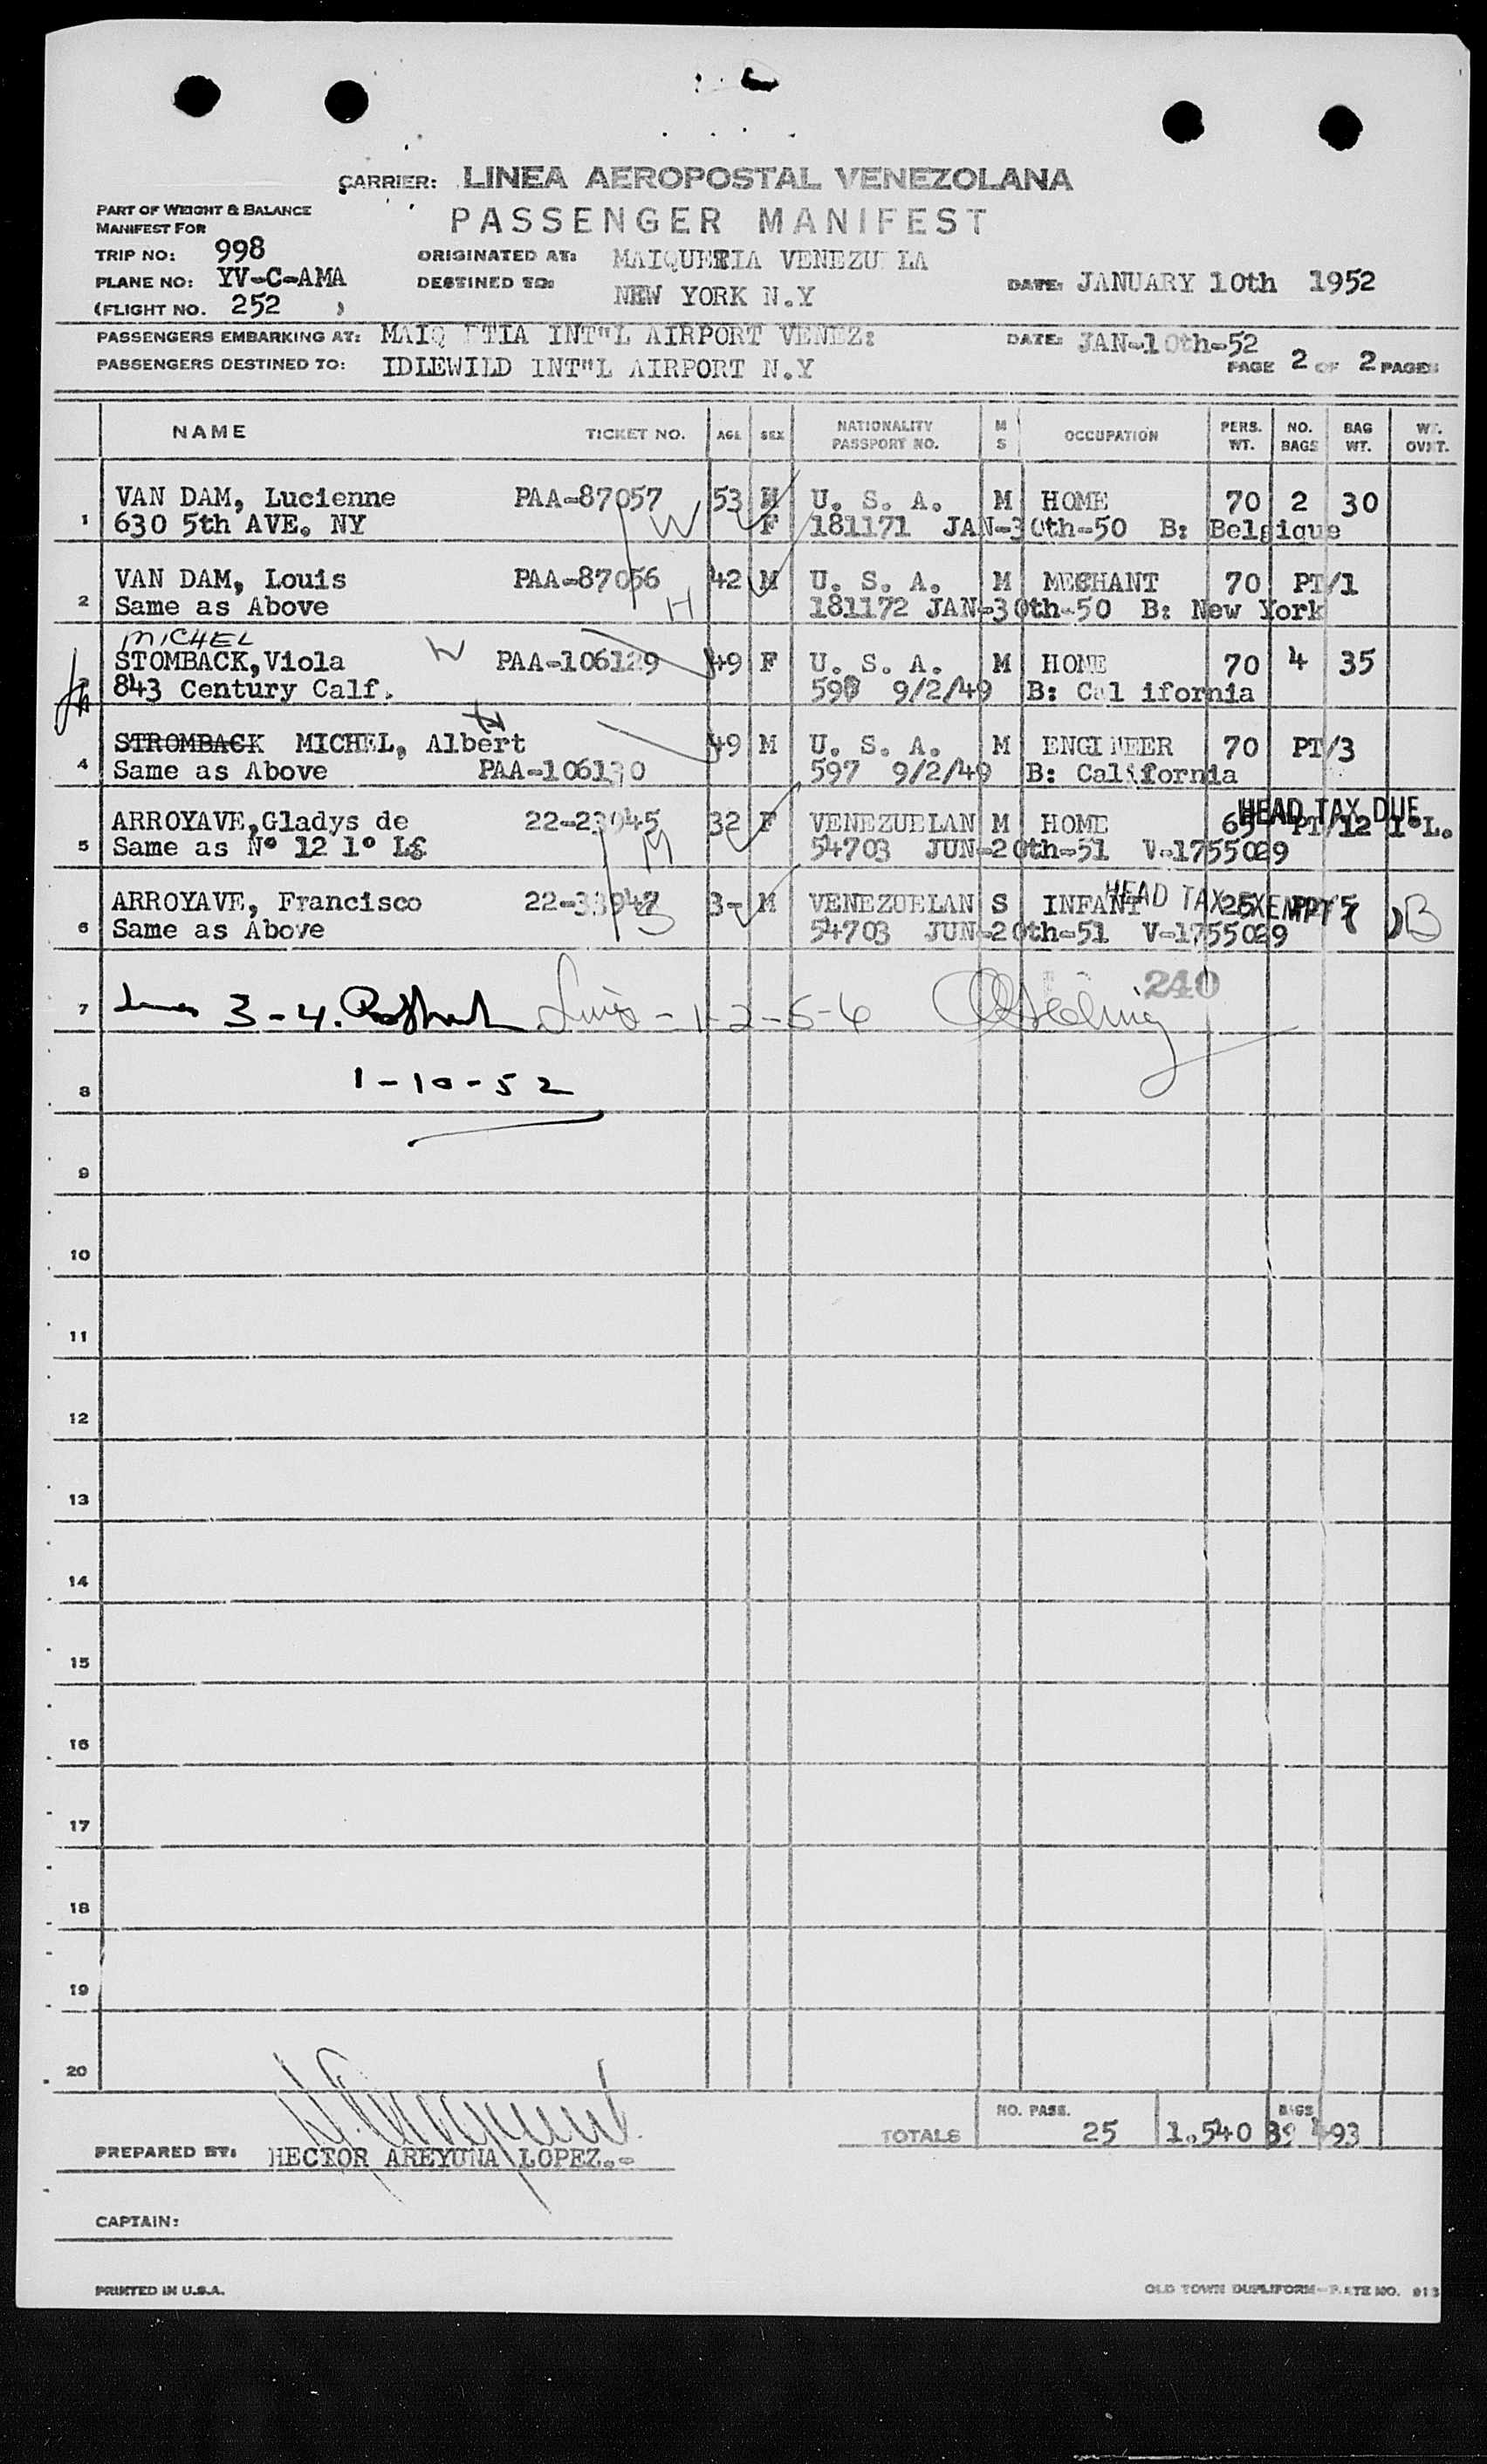 CARRIER: LINEA AEROPOSTAL VENEZOLANA
PASSENGER MANIFEST
PART OF WEIGHT & BALANCE
MANIFEST FOR
TRIP NO: 998
PLANE NO: YV-C-AMA
(FLIGHT NO. 252 )
ORIGINATED AT: MAIQUETIA VENEZU LA
DESTINED TO: NEW YORK N.Y
DATE: JANUARY 10th 1952
PASSENGERS EMBARKING AT: MAIQ ETIA INT"L AIRPORT VENEZ:
DATE: JAN-10th-52
PASSENGERS DESTINED TO: IDLEWILD INT"L AIRPORT N.Y
PAGE 2 OF 2 PAGES
NAME TICKET NO. AGE SEX NATIONALITY PASSPORT NO. M S OCCUPATION PERS. WT. NO. BAGS BAG WT. WT. OVRT.
VAN DAM, Lucienne PAA-87057 53 M U. S. A. M HOME 70 2 30
1 630 5th AVE. NY W F 181171 JAN-30th-50 B: Belgique
VAN DAM, Louis PAA-87056 42 M U. S. A. M MECHANT 70 PT/1
2 Same as Above H 181172 JAN-30th-50 B: New York
MICHEL
STOMBACK, Viola W PAA-106129 49 F U. S. A. M HOME 70 4 35
843 Century Calf. 598 9/2/49 B: Cal ifornia
STROMBACK MICHEL, Albert H 49 M U. S. A. M ENGINEER 70 PT/3
4 Same as Above PAA-106130 597 9/2/49 B: California
HEAD TAX DUE
ARROYAVE, Gladys de 22-23945 32 F VENEZUELAN M HOME 65 PT/12 1º L.
5 Same as Nº 12 1º L M 54703 JUN-20th-51 V-1755029
HEAD TAX EXEMPT ( )B
ARROYAVE, Francisco 22-33947 3- M VENEZUELAN S INFANT 25 PT/5
6 Same as Above 54703 JUN-20th-51 V-1755029
240
7 Lines 3-4. Lines - 1-2-5-6
8 1-10-52
9
10
11
12
13
14
15
16
17
18
19
20
NO. PASS. BAGS
TOTALS 25 1.540 39 493
PREPARED BY: HECTOR AREYUNA LOPEZ.-
CAPTAIN:
PRINTED IN U.S.A.
OLD TOWN DUPLIFORM-PLATE NO. 913